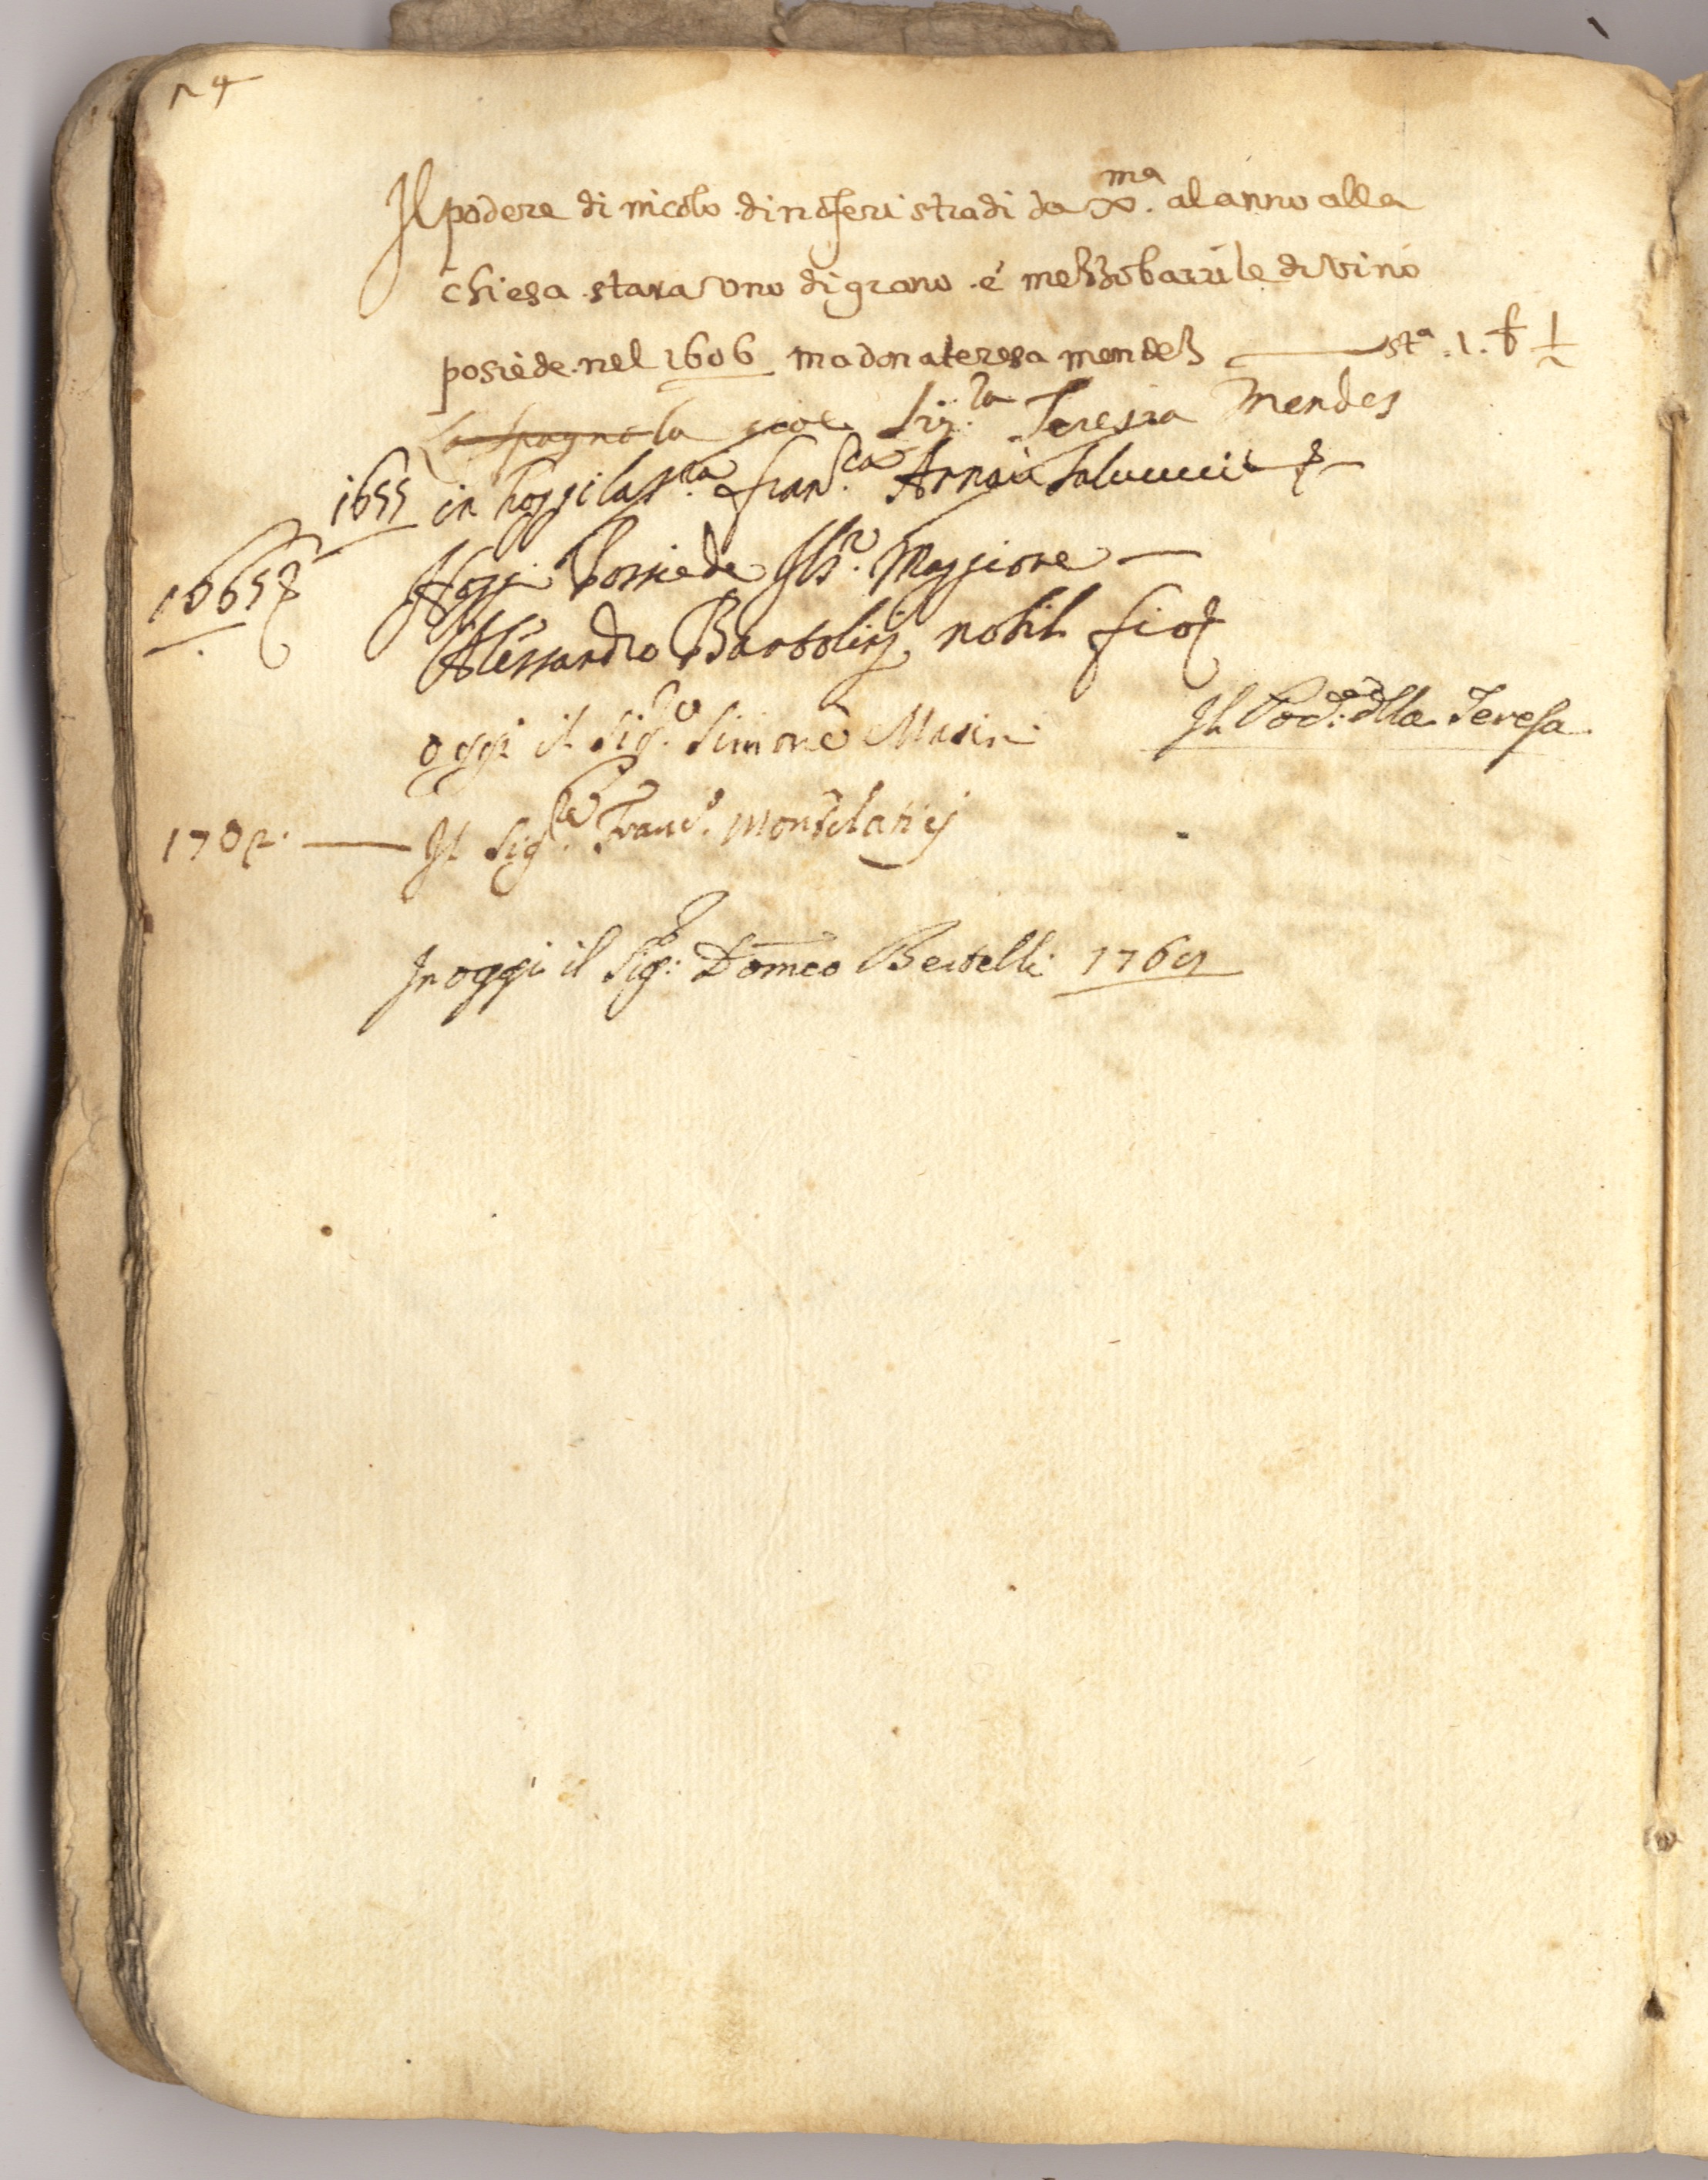 Il podere di nicolo di noferi stradi da Xma. al anno alla
chiesa stara uno di grano e mezzo barile di vino
posiede nel 1606 madona teresa mendez sta. 1. b 1/2
La spagnola cioe Sig.ra Teresia Mendes
1655 in hoggi la S.ra Fran.ca
1665 Hoggi Possiede Il S.r Maggiore
Alessandro Bartolinj nobil fior
oggi il Sig.re Simone Masini
Il Pod.e della Teresa
170 Il Sig.re Franc.o Montelaticj
In oggi il Sig.re Domeco Bertelli 176